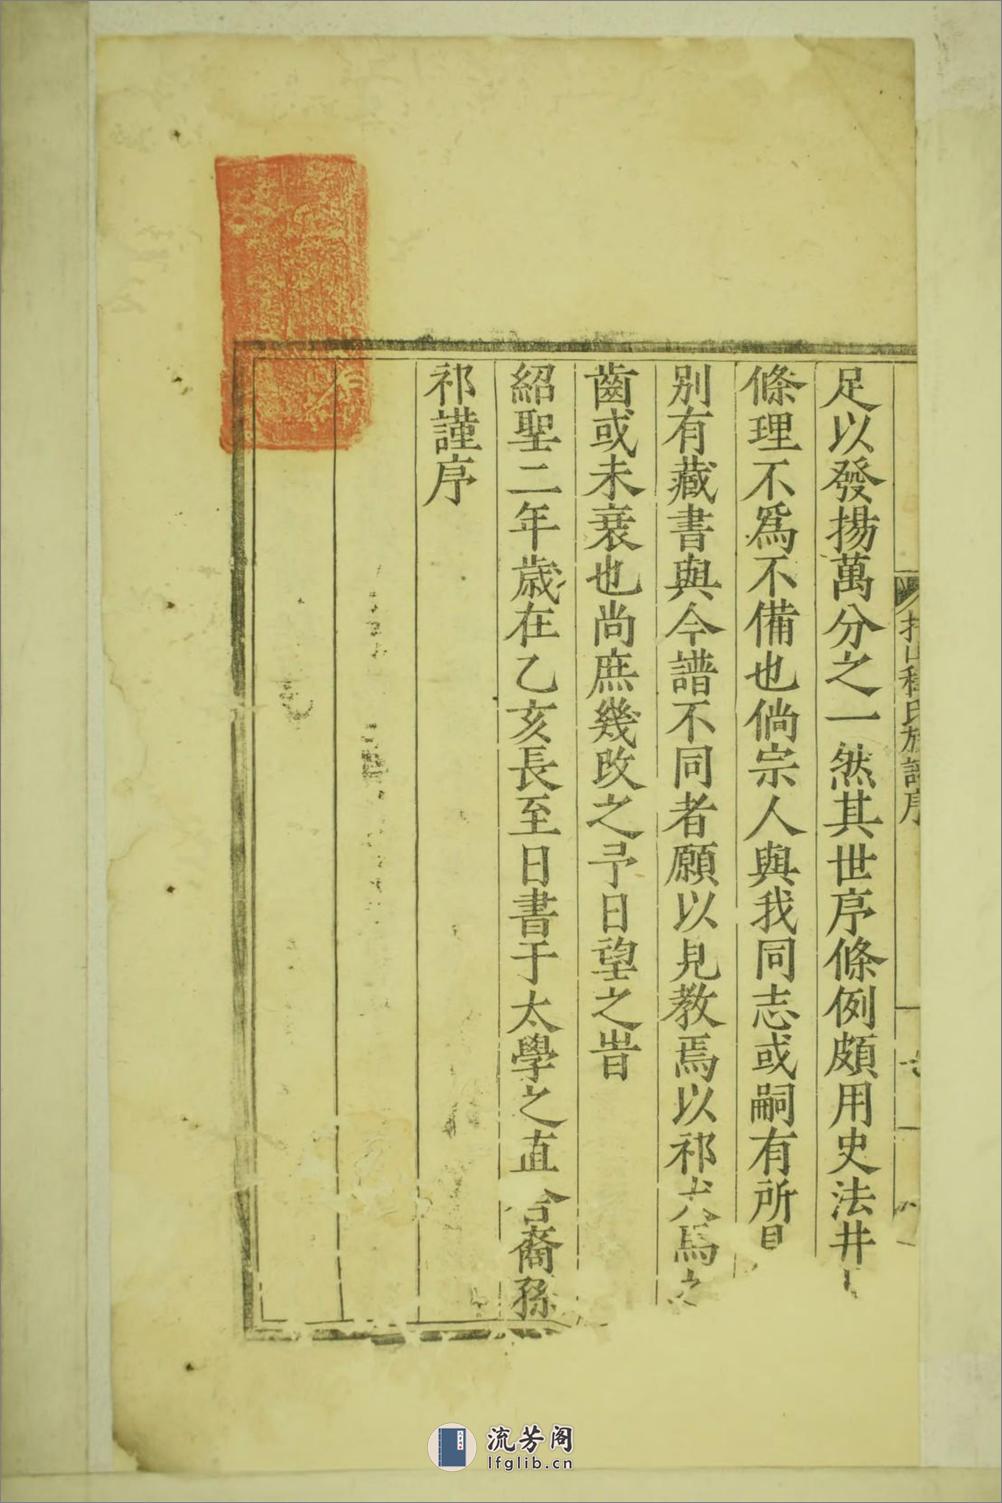 足以發揚萬分之一然其世序條例頗用史法井
條理不爲不備也倘宗人與我同志或嗣有所
別有藏書與今譜不同者願以見教焉以祁犬馬之
齒或未衰也尚庶幾改之予日望之旹
紹聖二年歲在乙亥長至日書于太學之直舍裔孫
祁謹序
氏族譜序
流芳阁
lfglib.cn